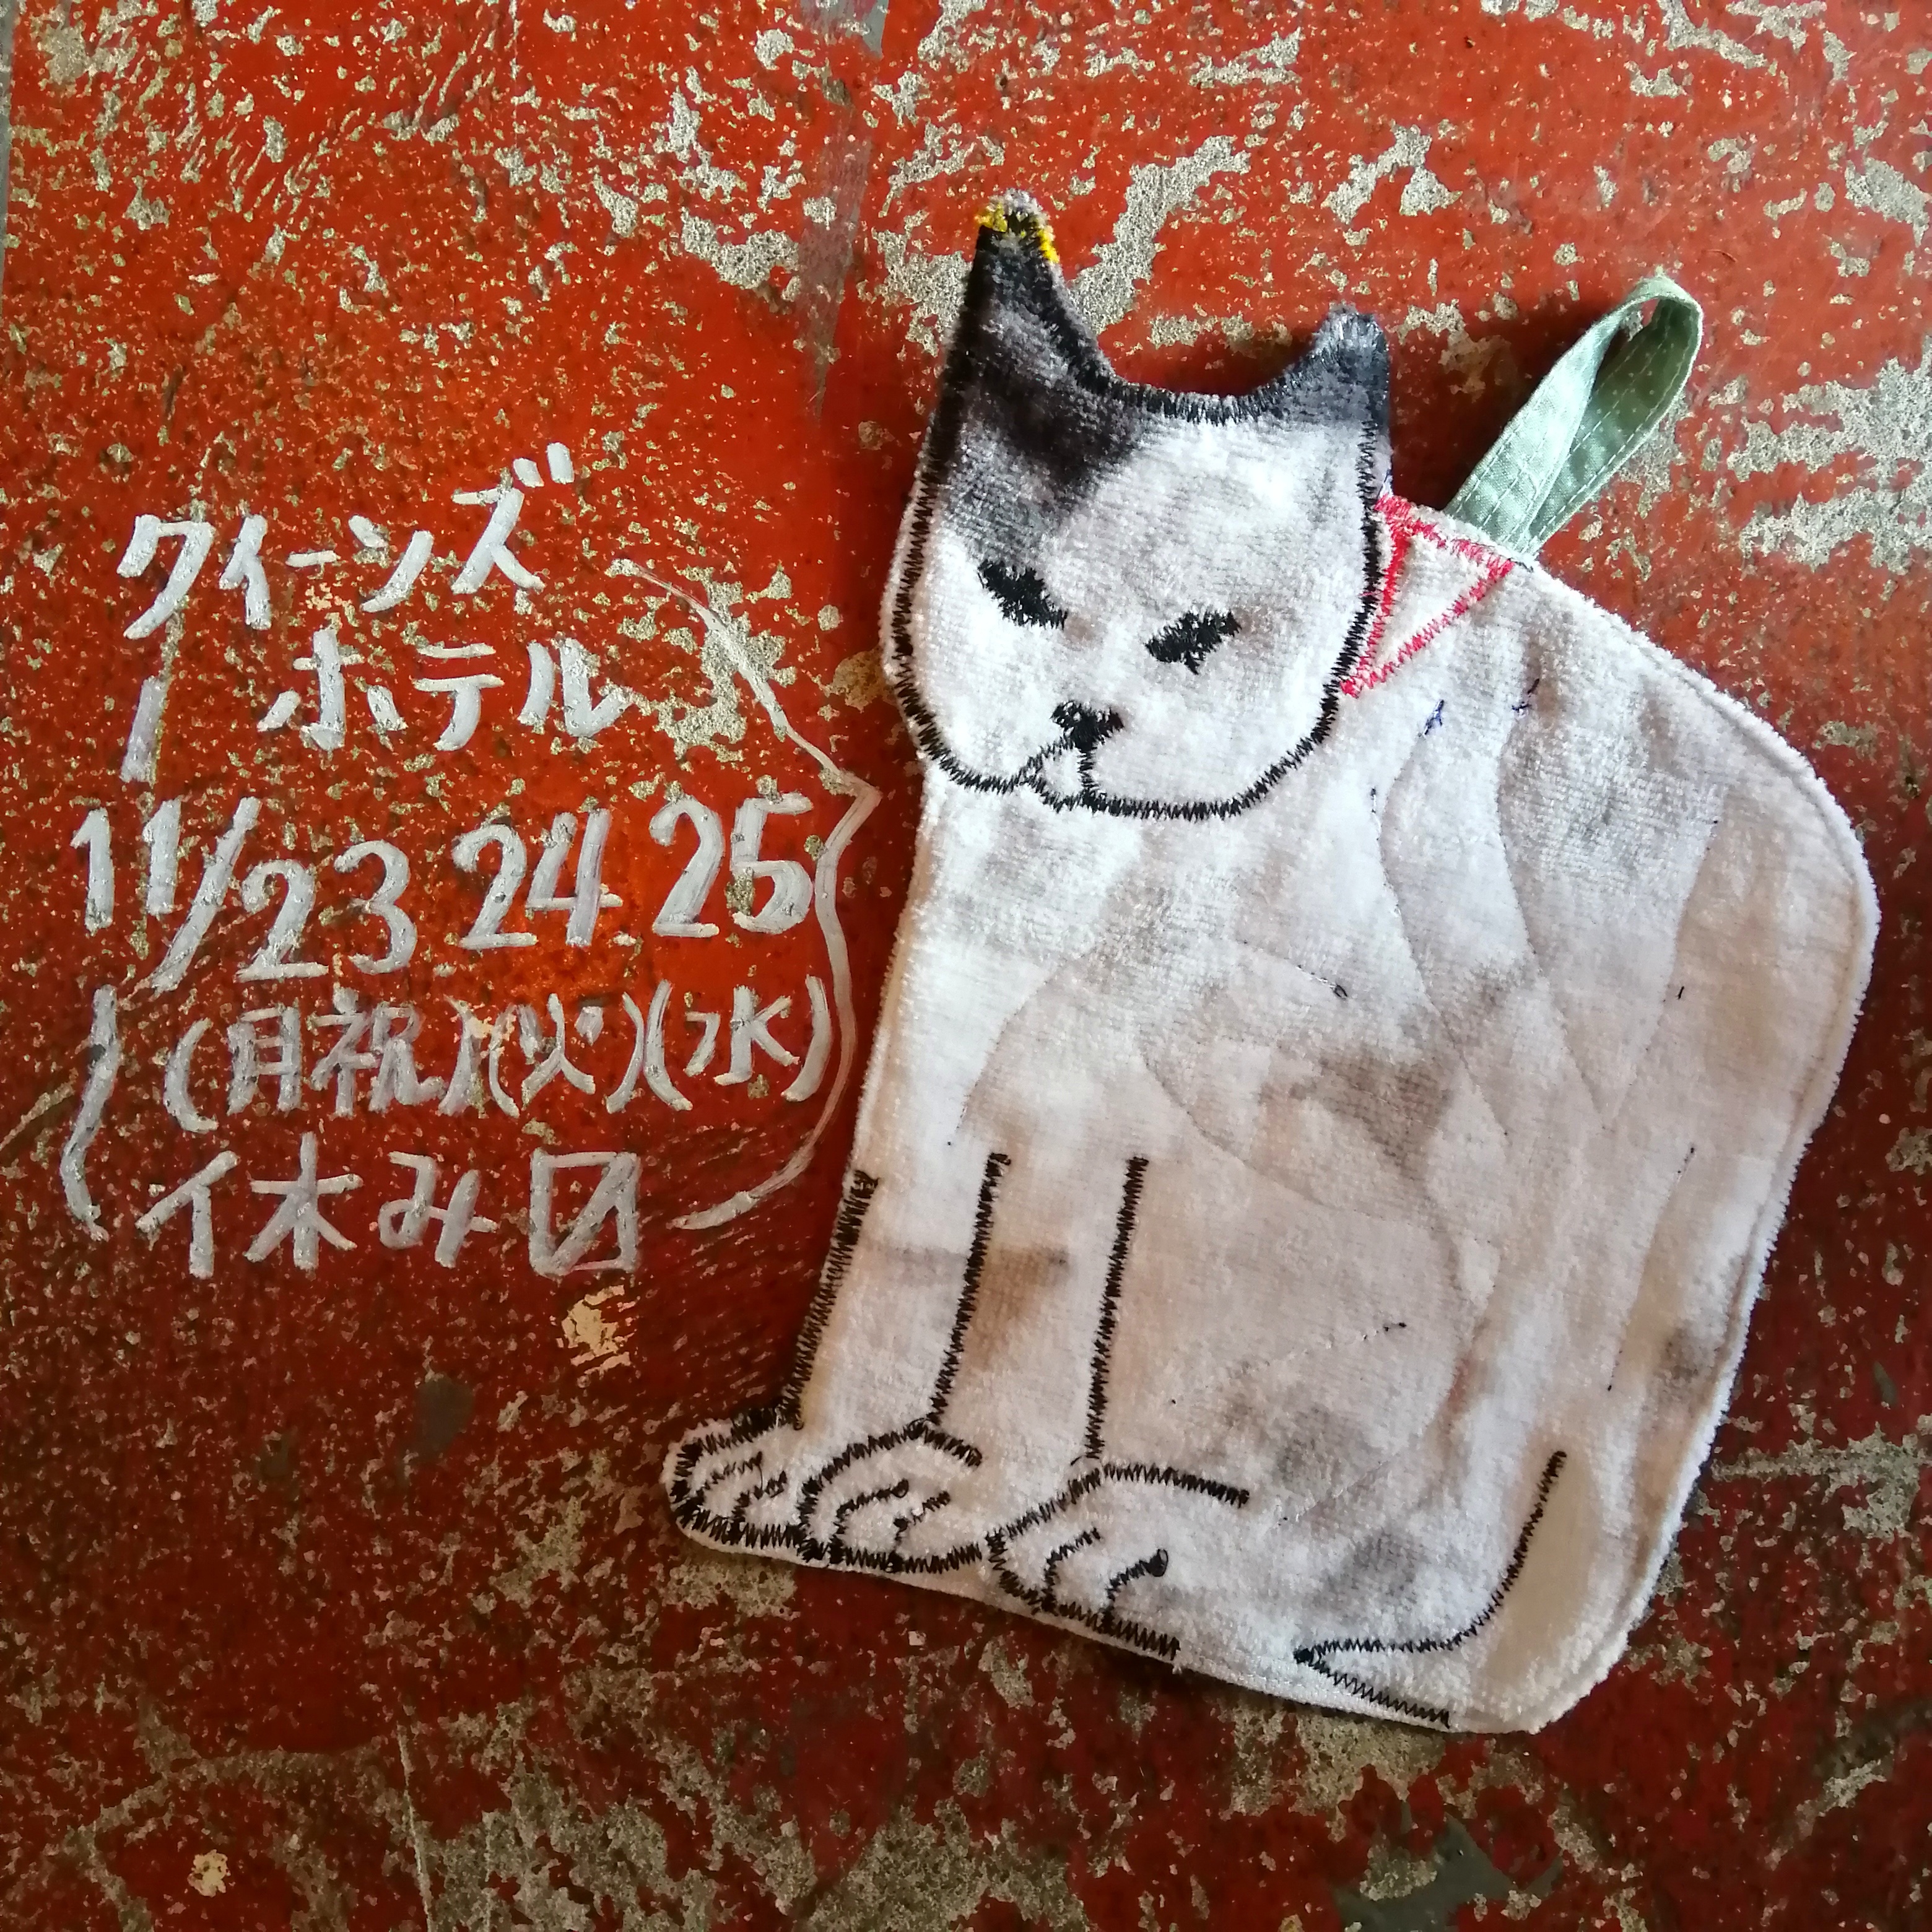 クイーンズ
ホテル
11/23.24.25
(月祝)(火)(水)
休み〼